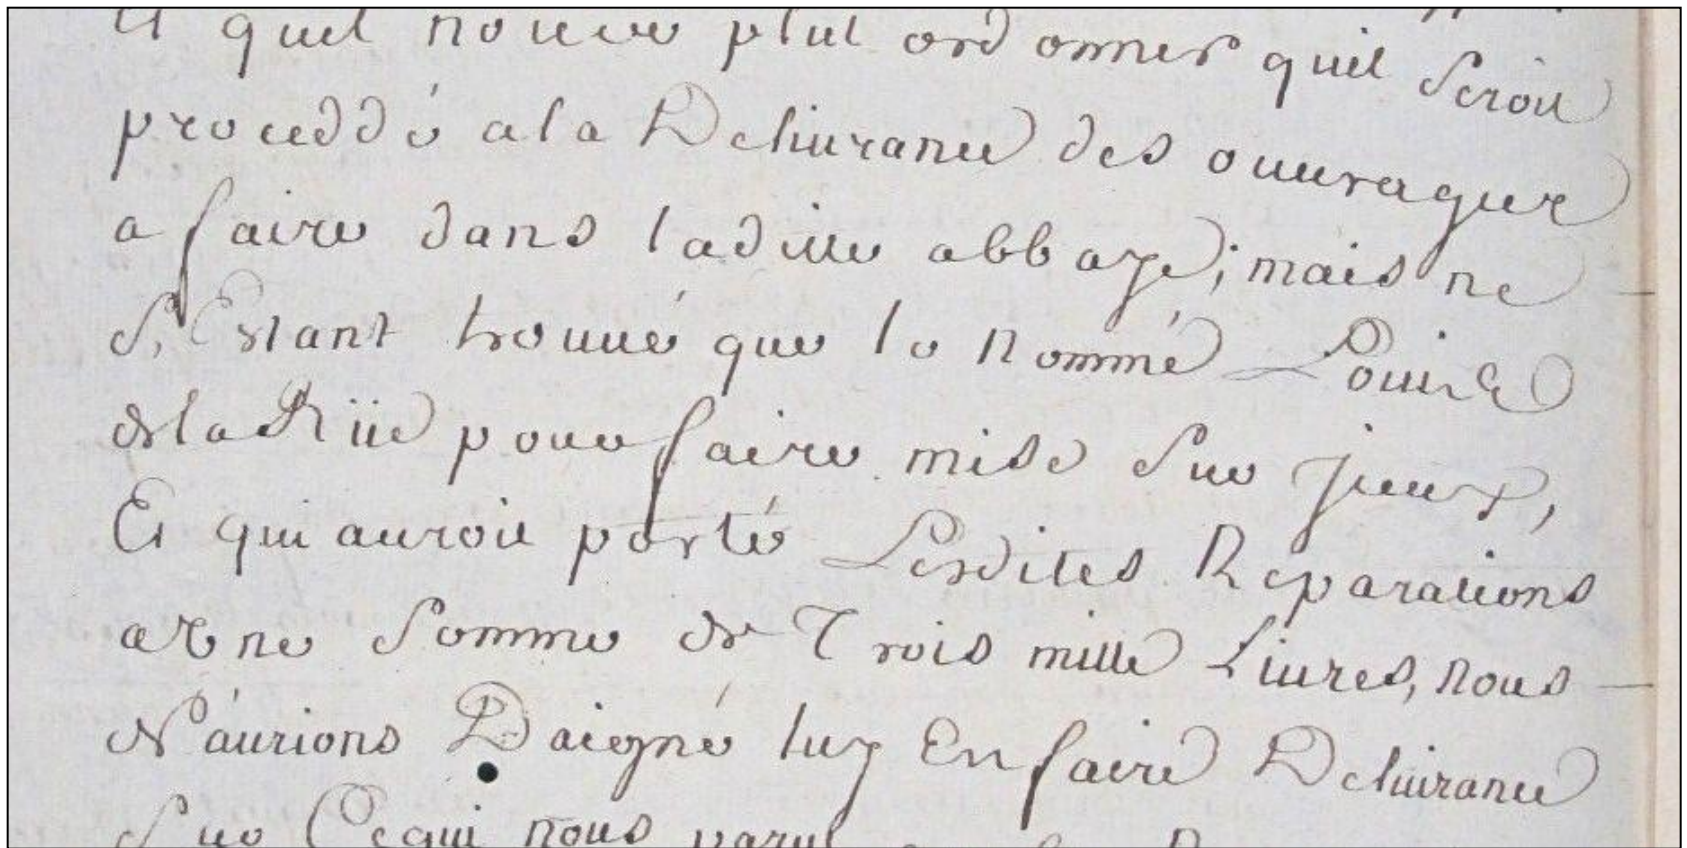 Et quil nous plut ordonner quil Seroit
proceddé a la Deliurance des ouurages
a faire dans laditte abbaye; mais ne
S'Estant trouué que le nommé Louis
de la Rüe pour faire mise Sur jceux,
Et qui auroit porté Lesdites Reparations
a Vne Somme de Trois mille Liures, nous
N'aurions Daigné luy En faire Deliurance
Sur Ce qui nous parut